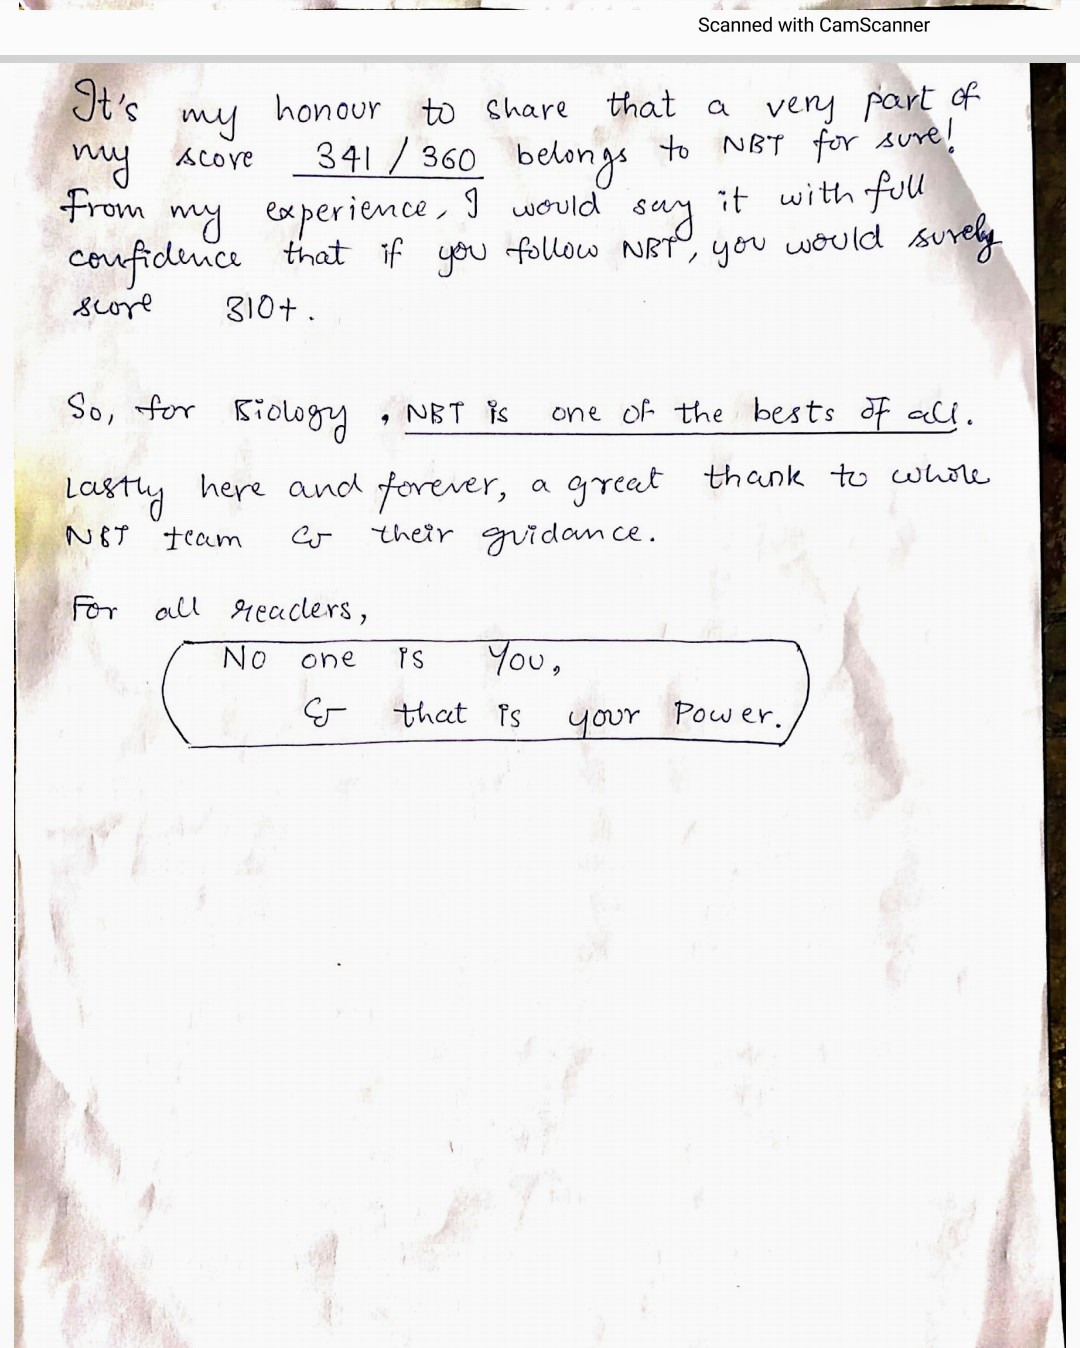 Scanned with CamScanner
It's my honour to share that a very part of
my score 341 / 360 belongs to NBT for sure!
From my experience, I would say it with full
confidence that if you follow NBT, you would surely
score 310+.
So, for Biology, NBT is one of the bests of all.
Lastly here and forever, a great thank to whole
NBT team & their guidance.
For all readers,
No one is You,
& that is your Power.